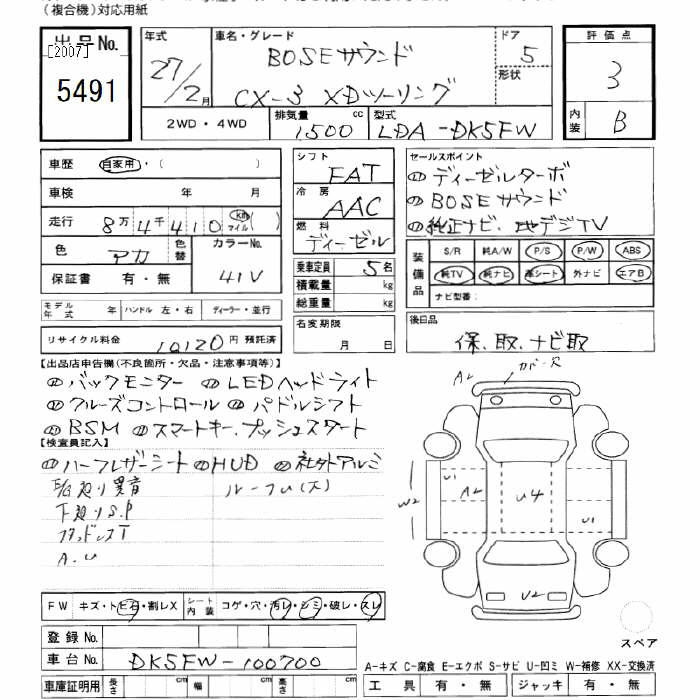 (複合機)対応用紙
出品No.
[2007]
5491
年式 27/2月
車名・グレード BOSEサウンド
CX-3 XDツーリング
ドア 5
形状
評価点 3
内装 B
2WD・4WD
排気量 1500 cc
型式 LDA-DK5FW
車歴 自家用・( )
車検 年 月
走行 8万4千410 km マイル( )
色 アカ 色替 カラーNo. 41V
保証書 有・無
モデル年式 年 ハンドル 左・右 ディーラー・並行
リサイクル料金 10120円 預託済
シフト FAT
冷房 AAC
燃料 ディーゼル
乗車定員 5名
積載量 kg
総重量 kg
名変期限 月 日
セールスポイント
ディーゼルターボ
BOSEサウンド
純正ナビ、地デジTV
装備品 S/R 純A/W P/S P/W ABS
純TV 純ナビ 革シート 外ナビ エアB
ナビ型番:
後日品
保、取、ナビ取
【出品店申告欄(不良箇所・欠品・注意事項等)】
バックモニター LEDヘッドライト
クルーズコントロール パドルシフト
BSM スマートキー、プッシュスタート
【検査員記入】
ハーフレザーシート HUD 社外アルミ
ルーフU(大)
下廻りS.P
A.U
A2
W2
U1
A2
U4
U1
U2
FW キズ・トビ石・割レX シート内装 コゲ・穴・汚レ・シミ・破レ・スレ
登録No.
車台No. DK5FW-100700
車庫証明用 長さ cm 幅 cm 高さ cm
スペア
A-キズ C-腐食 E-エクボ S-サビ U-凹ミ W-補修 XX-交換済
工具 有・無 ジャッキ 有・無